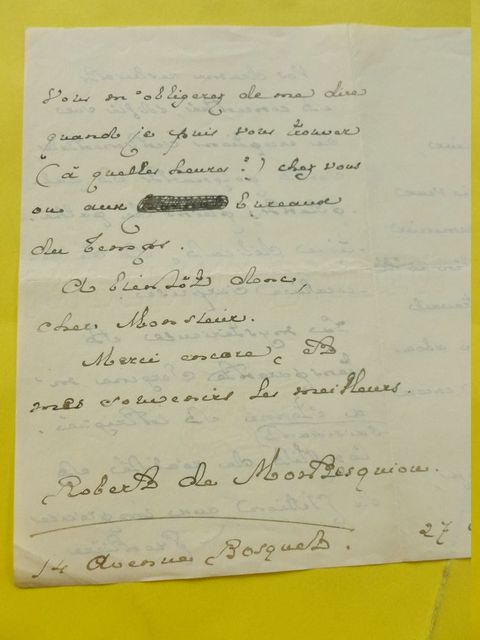 Vous m'obligerez de me dire
quand je puis vous trouver
(à quelles heures?) chez vous
ou aux Bureaux
du Temps.
A bientôt donc,
cher Monsieur.
Merci encore, et
mes souvenirs les meilleurs.
Robert de Montesquiou.
14 Avenue Bosquet.
27